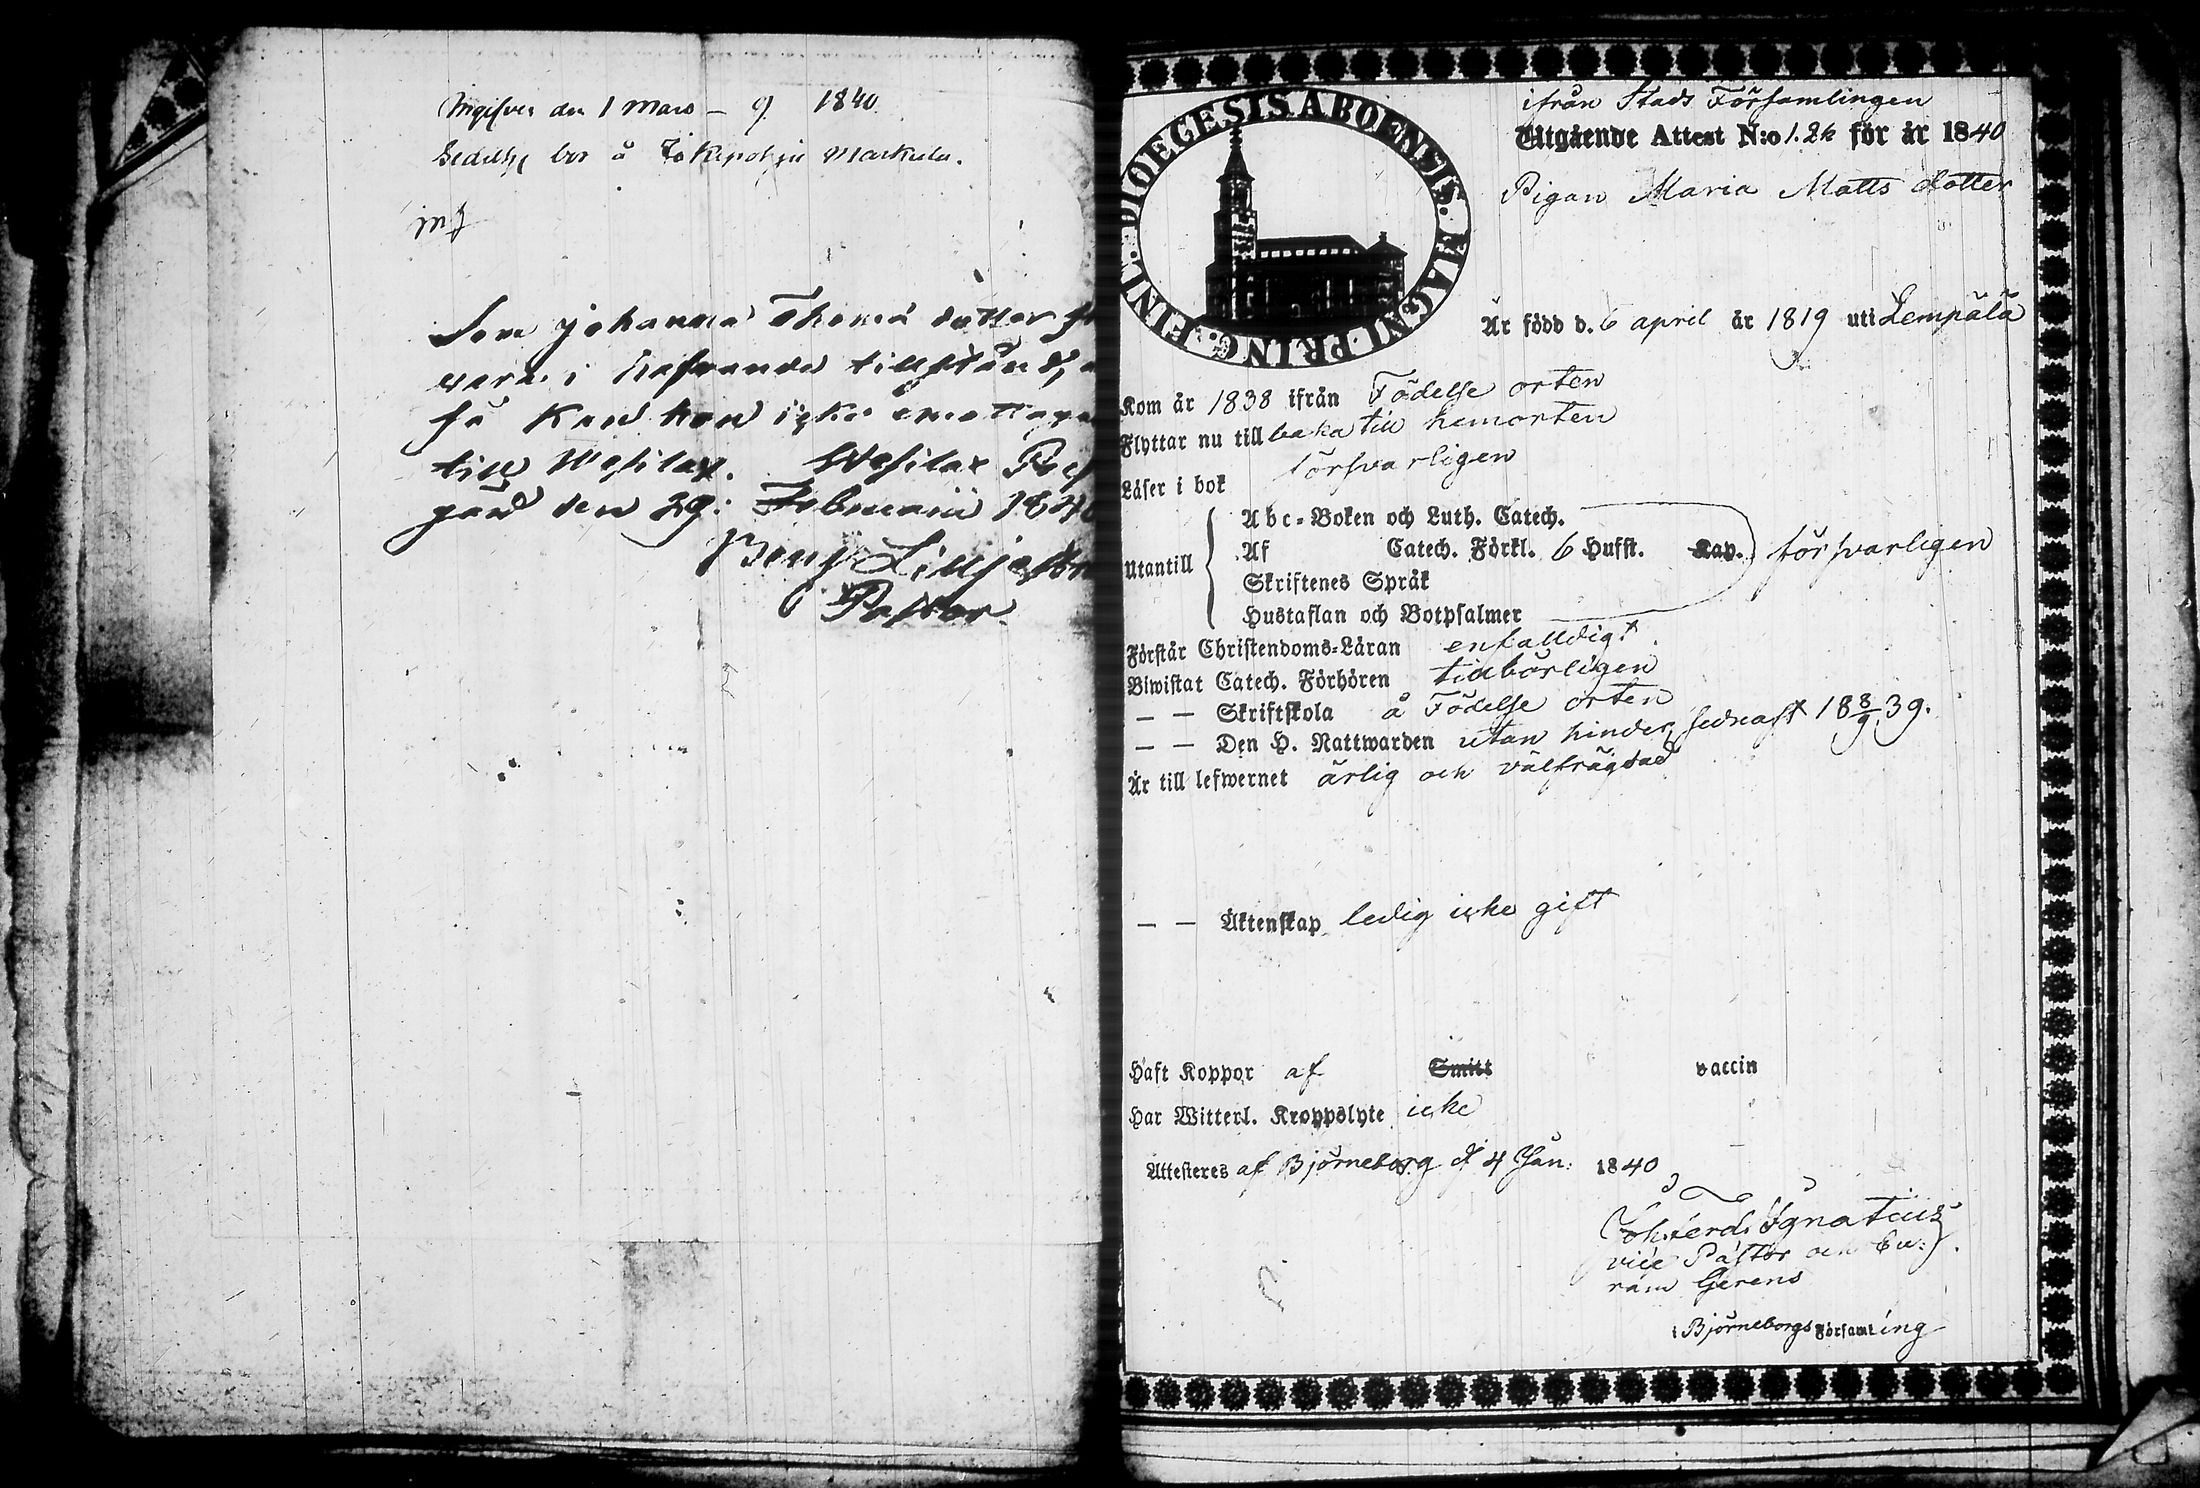 Ingifven den 1 Mars – 9 1840.
bor å Jokipohja Markula.
Som Johanna Thoma dotter
vara i hafvande tillstånd,
så kan hon icke emottagas
till Wesilax. Wesilax
gård den 29: Februarii 1840
Benj Lilljeström
Pastor.
DIOECESIS ABOENSIS. MAGNI PRINC. FINL.
ifrån Stads Församlingen
Utgående Attest N:o 1. 2h för år 1840
Pigan Maria Matts dotter
Är född d. 6 april år 1819 uti Lempälä
Kom år 1838 ifrån Födelse orten
Flyttar nu till baka till hemorten
Läser i bok försvarligen
Utantill
Abc-Boken och Luth. Catech.
Af Catech. Förkl. 6 Hufst. Kap. försvarligen
Skriftenes Språk
Hustaflan och Botpsalmer
Förstår Christendoms-Läran enfalldigt
Biwistat Catech. Förhören tillbörligen
— — Skriftskola å Födelse orten
— — Den H. Nattwarden utan hinder, sednast 18 8/9 39.
Är till lefwernet ärlig och välfrägdad
— — Äktenskap ledig icke gift
Haft Koppor af Smitt vaccin
Har Witterl. Kroppslyte icke
Attesteres af Björneborg d 4 Jan: 1840
Joh. Ferd. Ignatius
vice Pastor och Cu:
ram Gerens
i Björneborgs Församling